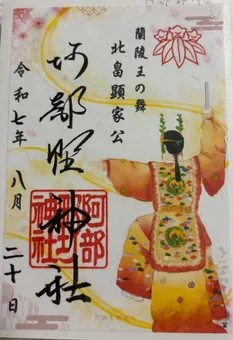 蘭陵王の舞
北畠顕家公
阿部野神社
令和七年 八月 二十日
阿部野神社